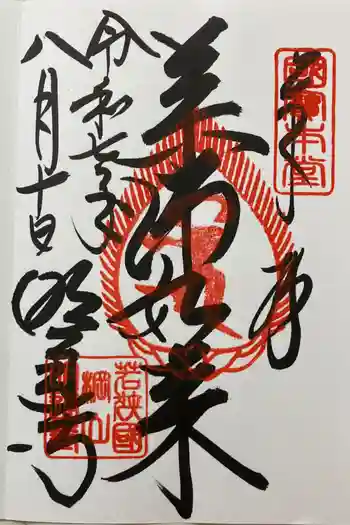 奉拝
國寳本堂
薬師如来
令和七年
八月十日
明通寺
若狭國
棡山